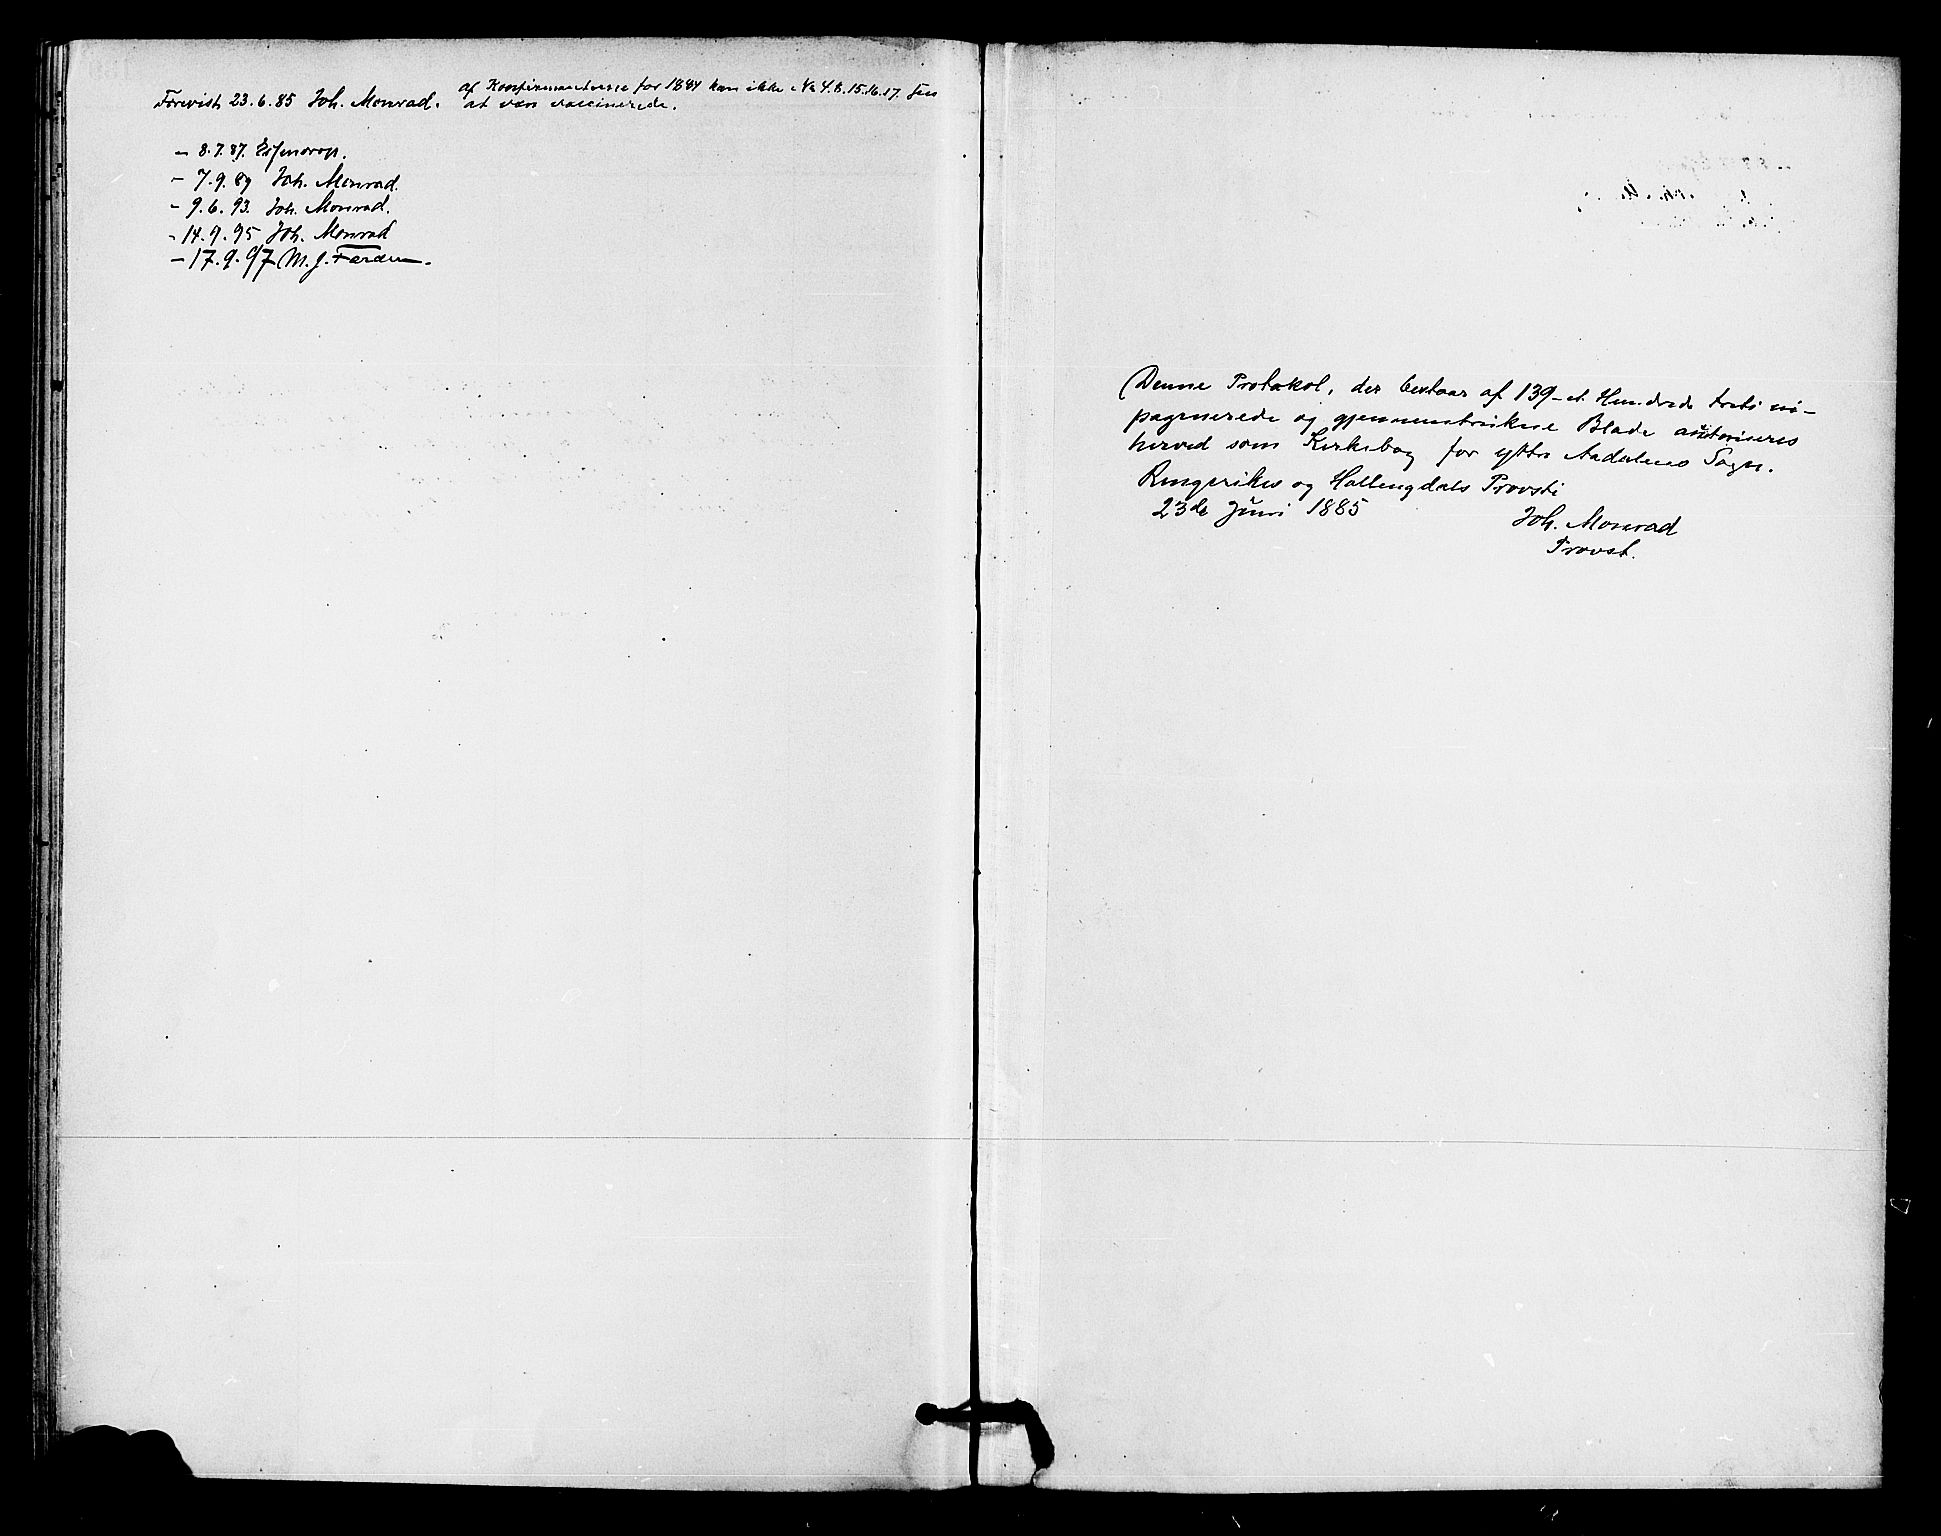 Forevist 23.6.85 Joh. Monrad. af Konfirmanterne for 1884 kan ikke No 4.8.15.16.17. sees
at være vaccinerede.
- 8.7.87.
- 7.9.89 Joh. Monrad.
- 9.6.93. Joh. Monrad.
- 14.9.95 Joh. Monrad
- 17.9.97 M. J. Færden.
Denne Protokol, der bestaar af 139 - et Hundrede treti ni -
paginerede og gjennemtrukne Blade autoriseres
herved som Kirkebog for ytre Aadalens Sogn.
Ringerikes og Hallingdals Provsti
23de Juni 1885
Joh. Monrad
Provst.